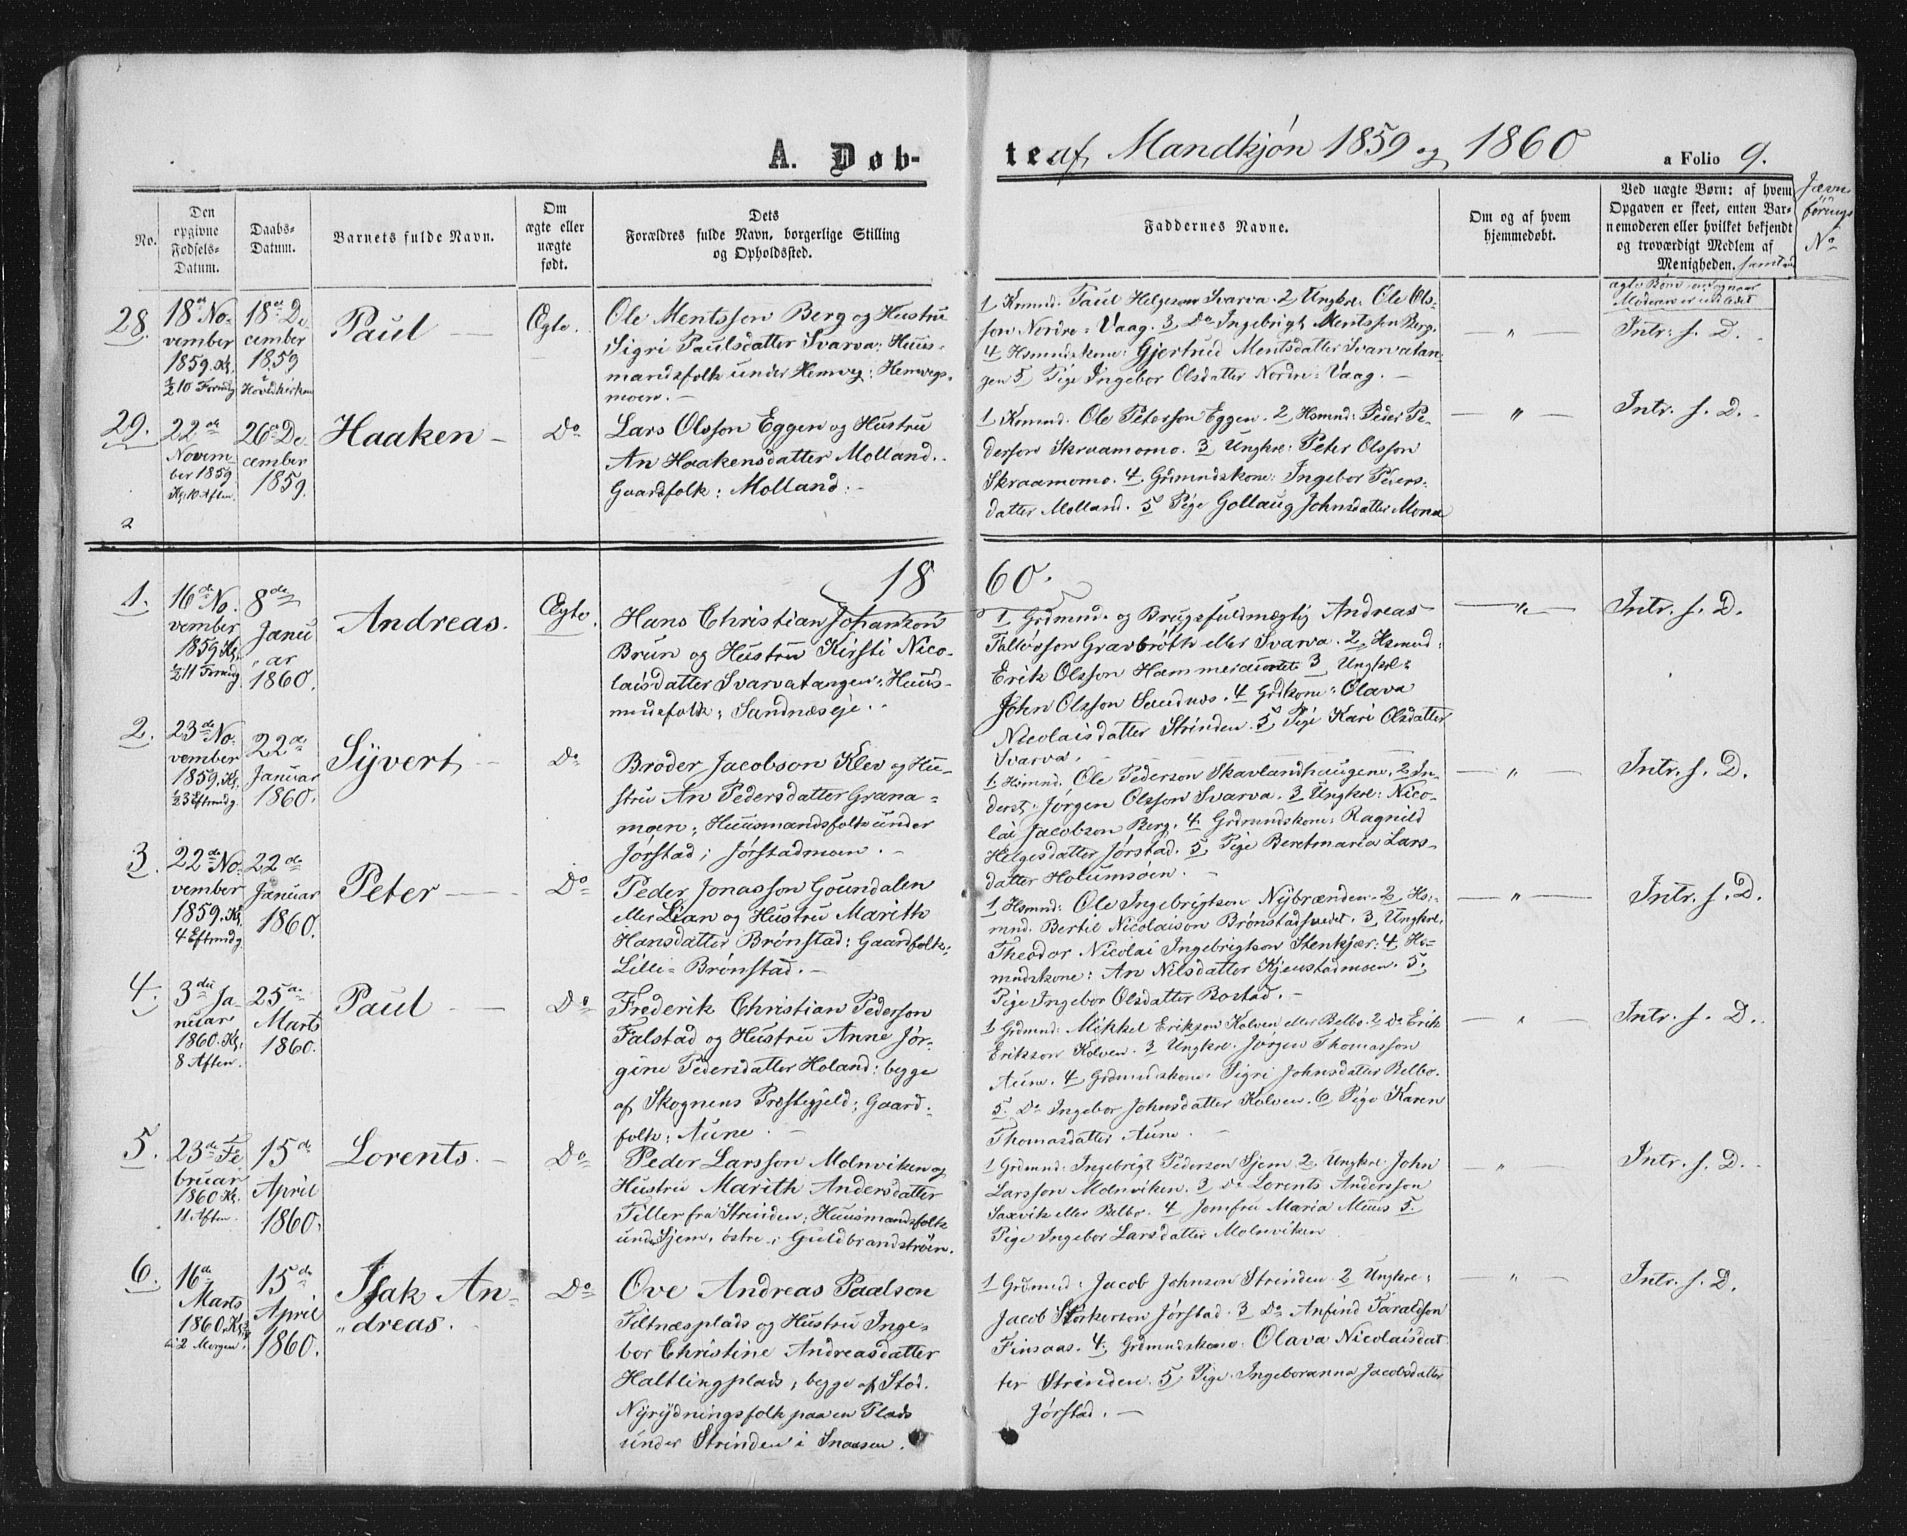 A. Døb-
te af Mandkjøn 1859 og 1860
a Folio 9.
No.
Den opgivne Fødsels-Datum.
Daabs-Datum.
Barnets fulde Navn.
Om ægte eller uægte født.
Dets
Forældres fulde Navn, borgerlige Stilling
og Opholdssted.
Faddernes Navne.
Om og af hvem
hjemmedøbt.
Ved uægte Børn: af hvem
Opgaven er skeet, enten Bar-
nemoderen eller hvilket bekjendt
og troværdigt Medlem af
Menigheden. samt ved
ægte Børn
Moderen er indledet
Jævn
førings
No
28.
18de No-
vember
1859. Kl.
½10 Formdg
18de De
cember
1859
Hovedkirken
Paul
Ægte.
Ole Mentsson Berg og Hustru
Sigri Paulsdatter Svarva: Huus-
mandsfolk under Hemveg: Hemvegs-
moen. –
1 Krmnd. Paul Helgeson Svarva. 2 Ungkrl: Ole Ols-
son Nordre-Vaag. 3 Do Ingebrigt Mentsson Berg.
4 Hsmndskone: Gjertrud Mentsdatter Svarvatan-
gen 5 Pige Ingebor Olsdatter Nordre: Vaag. –
"
Intr. s. D.
29.
22de
Novem-
ber 1859
Kl. 10 Aften.
26de De
cember
1859.
Haaken –
Do
Lars Olsson Eggen og Hustru
An Haakensdatter Molland.
Gaardfolk: Molland. –
1 Krmnd. Ole Peterson Eggen. 2 Hsmnd: Peder Pe-
derson Skraamomo. 3 Ungkrl: Peter Olsson
Skraamomo. 4 Grmndskone: Ingebor Peders-
datter Molland. 5 Pige Gollaug Johnsdatter Mona
"
Intr. s. D.
18 60.
1.
16de No-
vember
1859 Kl.
½11 Formdg
8de
Janu
ar
1860.
Andreas.
Ægte.
Hans Christian Johanson
Brun og Hustru Kirsti Nico-
laisdatter Svarvatangen: Huus-
mdsfolk: Sandnæseje.
1 Grdmnd. og Brugsfuldmægtig Andreas
Tollevsson Gravbrøth eller Svarva. 2 Hsmnd:
Erik Olsson Hammer 3 Ungkrl:
John Olsson Sandnes. 4 Grdkone: Olava
Nicolaisdatter Strinden. 5 Pige Kari Olsdatter
Svarva.
"
Intr. s. D.
2.
23de No-
vember
1859. Kl.
½3 Eftmdg.
22de
Januar
1860.
Syvert,
Do
Broder Jacobson Klev og Hu-
stru An Pedersdatter Grana-
moen; Huusmandsfolk under
Jørstad; Jørstadmoen. –
1 Hsmnd. Ole Pederson Skavlandhaugen. 2 In-
derst: Jørgen Olsson Svarva. 3 Ungkrl: Nico-
lai Jacobson Berg. 4 Grdmndskone: Ragnild
Helgesdatter Jørstad. 5 Pige Beretmaria Lars-
datter Holumsøen. –
"
Intr. s. D.
3.
22de No-
vember
1859. Kl.
4 Eftmdg
22de
Januar
1860.
Peter
Do
Peder Jonasson Goundalen
eller Lian og Hustru Marith
Hansdatter Brønstad: Gaardfolk:
Lille-Brønstad. –
1 Hsmnd: Ole Ingebrigtson Nybrænden. 2 Hs-
mnd. Bertil Nicolaison Brønstadsvedet. 3 Ungkrl.
Theodor Nicolai Ingebrigtson Stenkjær: 4 Hs-
mndskone: An Nilsdatter Kjenstadmoen. 5.
Pige Ingebor Olsdatter Bostad. –
"
Intr. s. D.
4.
3die Ja-
nuar
1860. Kl.
8 Aften.
25de
Marts
1860.
Paul
Do
Frederik Christian Pederson
Falstad og Hustru Anne Jør-
gine Pedersdatter Holand: begge
af Skognens Præstegjeld; Gaard-
folk: Aune. –
1 Grdmnd: Mikkel Erikson Kolven eller Belbo. 2 Do Erik
Erikson Kolven. 3 Ungkrl. Jørgen Thomasson
Aune. 4 Grdmndskone. Sigri Johnsdatter Belbo.
5. Do Ingebor Johnsdatter Kolven. 6 Pige Karen
Thomasdatter Aune. –
"
Intr. s. D.
5.
23de Fe
bruar
1860. Kl.
11 Aften.
15de
April
1860.
Lorents. –
Do
Peder Larsson Molnviken og
Hustru Marith Andersdatter
Tiller fra Strinden; Huusmandsfolk
under Sjem, østre; Guldbrandstrøen.
1 Grdmnd: Ingebrigt Pederson Sjem 2. Ungkrl. John
Larsson Molnviken. 3 Do Lorents Andersson
Saxvik eller Belbo. 4 Jomfru Maria Muus 5.
Pige Ingebor Larsdatter Molnviken
"
Intr. s. D.
6.
16de
Marts
1860. Kl.
2 Morgen.
15de
April
1860.
Isak An-
dreas.
Do
Ove Andreas Paalson
Tiltnæsplads og Hustru Inge-
bor Christine Andreasdatter
Haltlingplads; begge af Stod.
Nyrydningsfolk paa en Plads
under Strinden i Snaasen.
1 Grdmnd: Jacob Johnson Strinden. 2 Ungkrl:
Jacob Storkerson Jørstad. 3 Do Anfind Taraldson
Finsaas. 4. Grdmndskone. Olava Nicolaisdat
ter Strinden. 5 Pige. Ingeboranna Jacobsdatter
Jørstad. –
"
Intr. s. D.